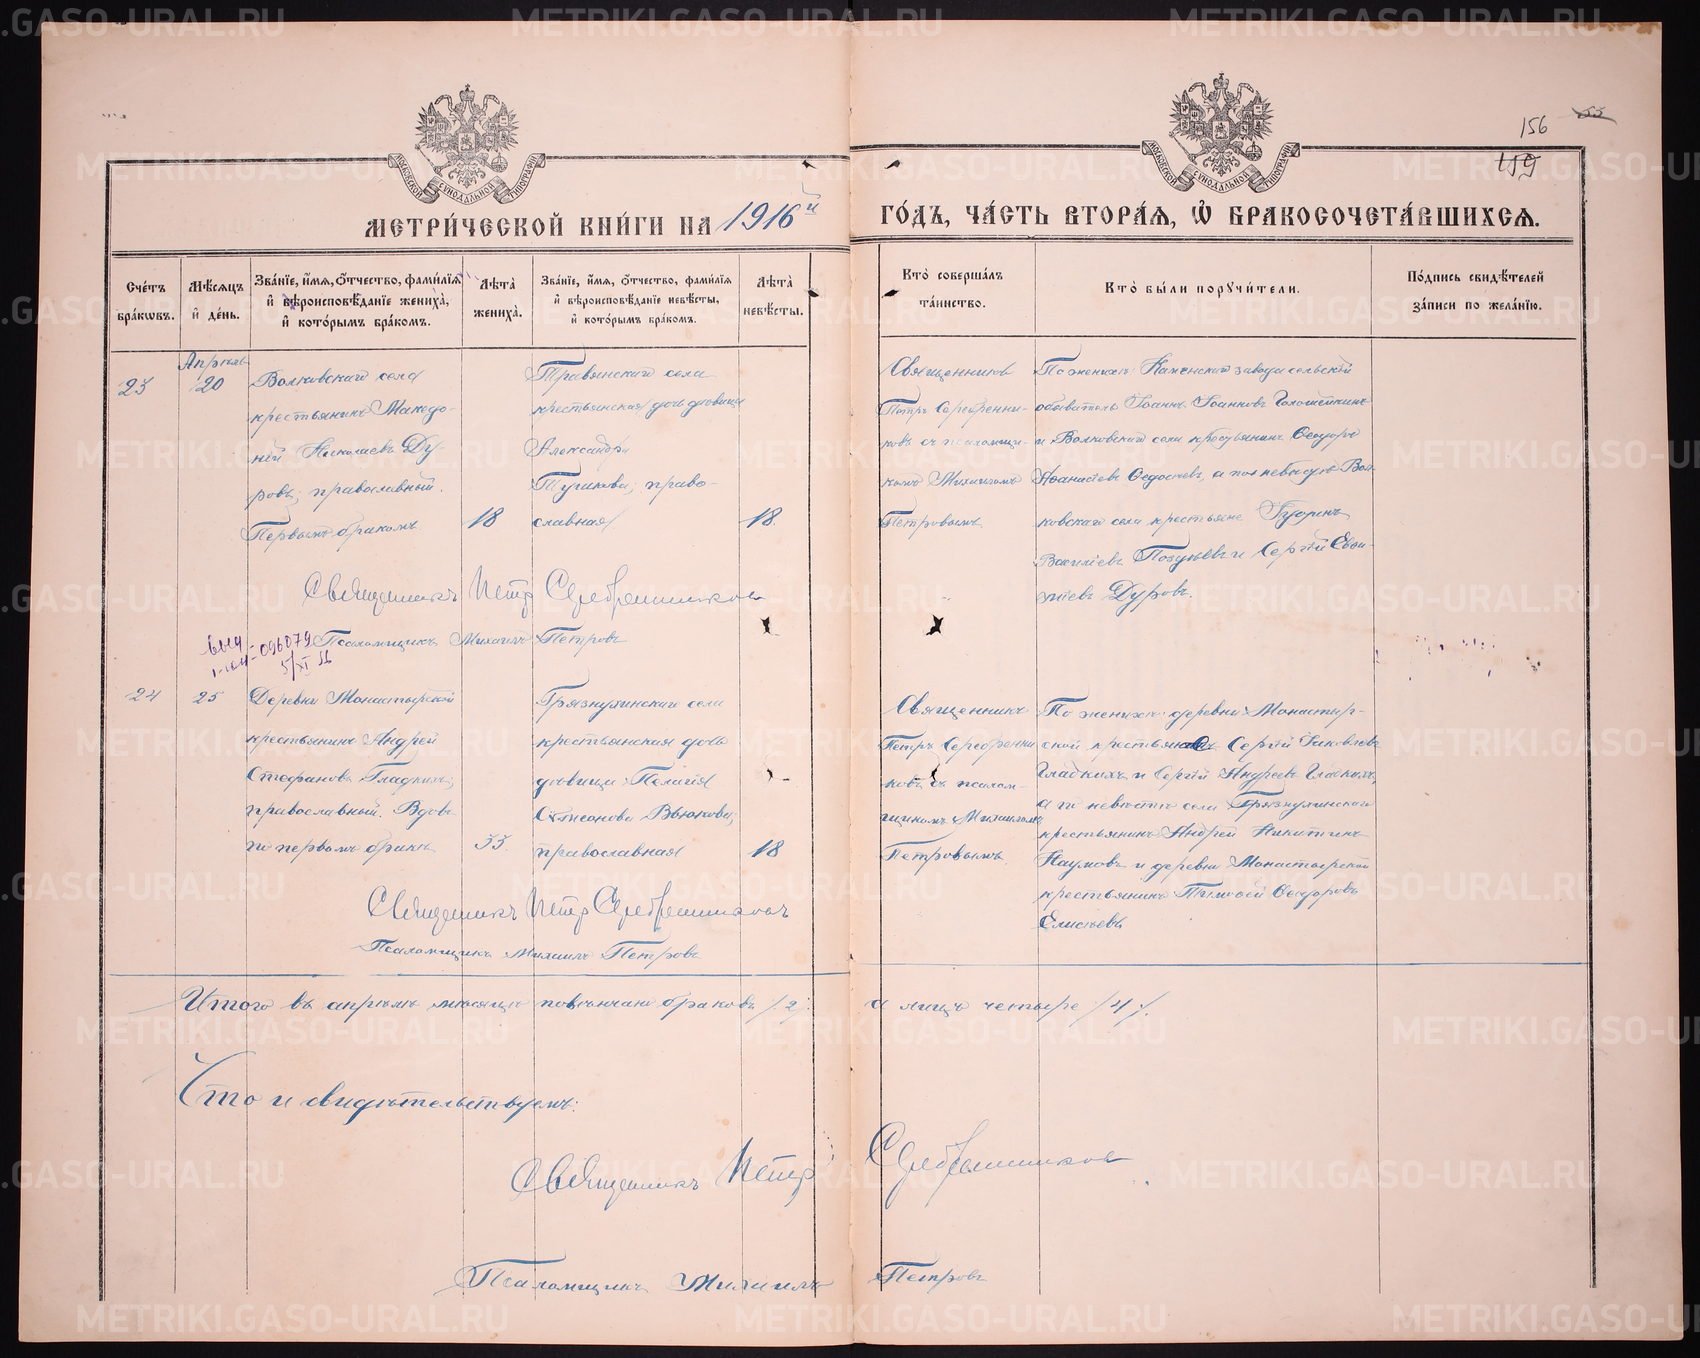 МЕТРИ́ЧЕСКОЙ КНИ́ГИ НА 1916й ГО́ДЪ, ЧА́СТЬ ВТОРА́Я, Ѿ БРАКОСОЧЕТА́ВШИХСЯ.
156
159
МОСКОВСКОЙ СѴНОДАЛЬНОЙ ТИПОГРАФІИ
МОСКОВСКОЙ СѴНОДАЛЬНОЙ ТИПОГРАФІИ
Сче́тъ бра́кωвъ.
Мѣ́сяцъ и де́нь.
Зва́нїе, и́мя, о́тчество, фами́лїя и вѣроисповѣ́данїе жениха̀, и кото́рымъ бра́комъ.
Лѣта̀ жениха̀.
Зва́нїе, и́мя, о́тчество, фами́лїя и вѣроисповѣ́данїе невѣ́сты, и кото́рымъ бра́комъ.
Лѣта̀ невѣ́сты.
Кто̀ соверша́лъ та́инство.
Кто̀ бы́ли пору́чи́тели.
По́дпись свидѣ́телей за́писи по жела́нїю.
23
Апрѣль
20
Волковскаго села
крестьянинъ Македо-
ній Николаевъ Ду-
ровъ; православный.
Первымъ бракомъ
18
Травянскаго села
крестьянская дочь девица
Александра
право-
славная
18.
Священникъ
Петръ Серебренни-
ковъ съ псаломщи-
комъ Михаиломъ
Петровымъ
По женихѣ: Каменскаго завода сельскій
обыватель Іоаннъ Іоанновъ
и Волковскаго села крестьянинъ Ѳеодоръ
Аѳанасіевъ Ѳедосѣевъ, а по невѣстѣ Вол-
ковскаго села крестьяне
Василіевъ и Сергій
Дуровъ.
Священникъ Петръ Серебренниковъ
Псаломщикъ Михаилъ Петровъ
096079
5/XI
24
25
Деревни Монастырской
крестьянинъ Андрей
Стефановъ Гладкихъ,
православный. Вдовъ
по первомъ бракѣ
33.
Грязнухинскаго села
крестьянская дочь
девица Пелагія
Вьюкова;
православная
18
Священникъ
Петръ Серебренни-
ковъ съ псалом-
щикомъ Михаиломъ
Петровымъ.
По женихѣ: деревни Монастыр-
ской крестьяне Сергій Іаковлевъ
Гладкихъ и Сергій Андреевъ Гладкихъ,
а по невѣстѣ села Грязнухинскаго
крестьянинъ Андрей Никитинъ
Наумовъ и деревни Монастырской
крестьянинъ Тимоѳей Ѳеодоровъ
Елисѣевъ
Священникъ Петръ Серебренниковъ
Псаломщикъ Михаилъ Петровъ
Итого въ апрѣлѣ мѣсяцѣ повѣнчано браковъ /2/: а лицъ четыре /4/.
Что и свидѣтельствуемъ:
Священникъ Петръ Серебренниковъ
Псаломщикъ Михаилъ Петровъ
METRIKI.GASO-URAL.RU